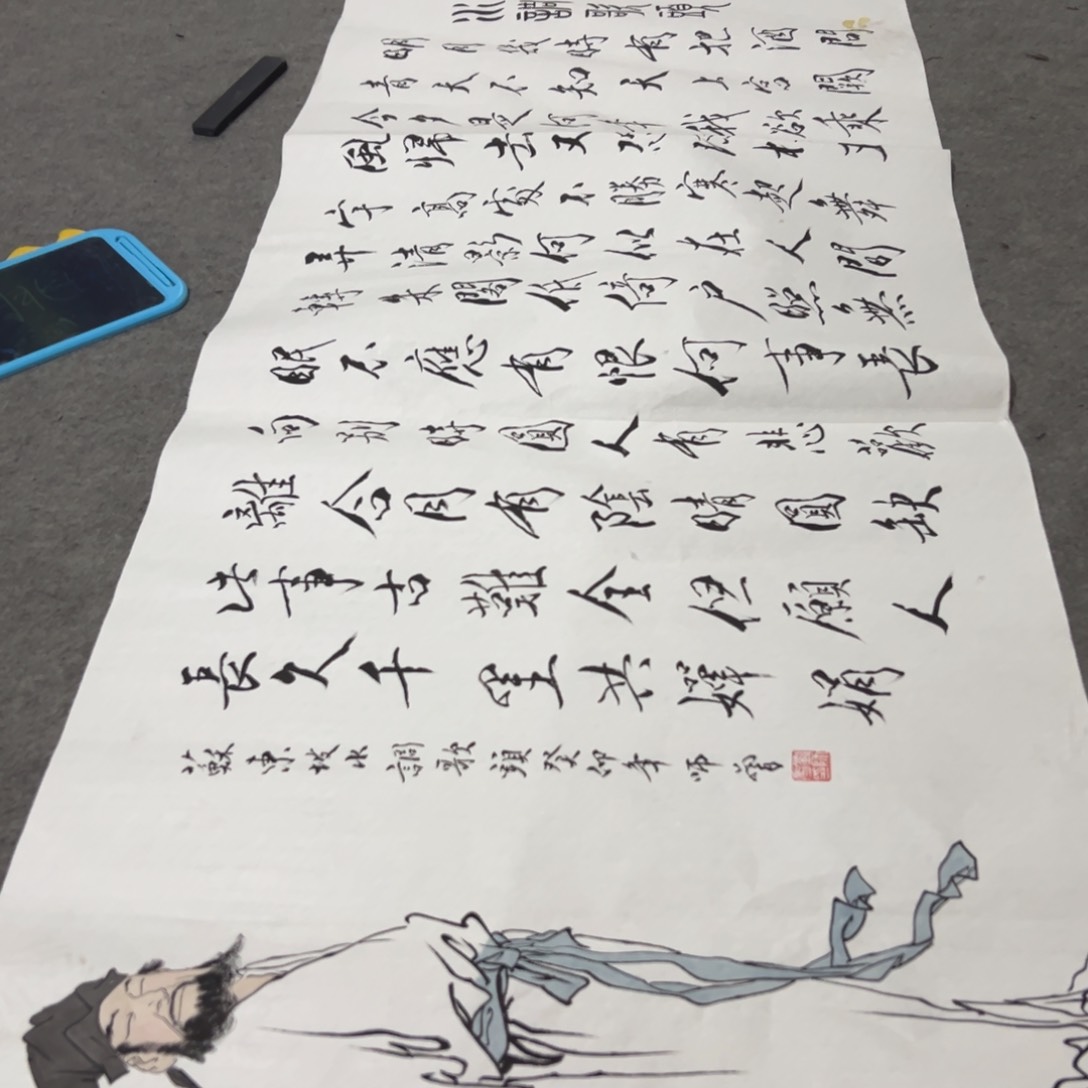 水調歌頭
明月幾時有把酒問
青天不知天上宮闕
今夕是何年我欲乘
風歸去又恐
宇高處不勝寒起舞
弄清影何似在人間
轉朱閣低綺戶照無
眠不應有恨何事長
向別時圓人有悲歡
離合月有陰晴圓缺
此事古難全但願人
長久千里共嬋娟
蘇東坡水調歌頭癸卯年師曾